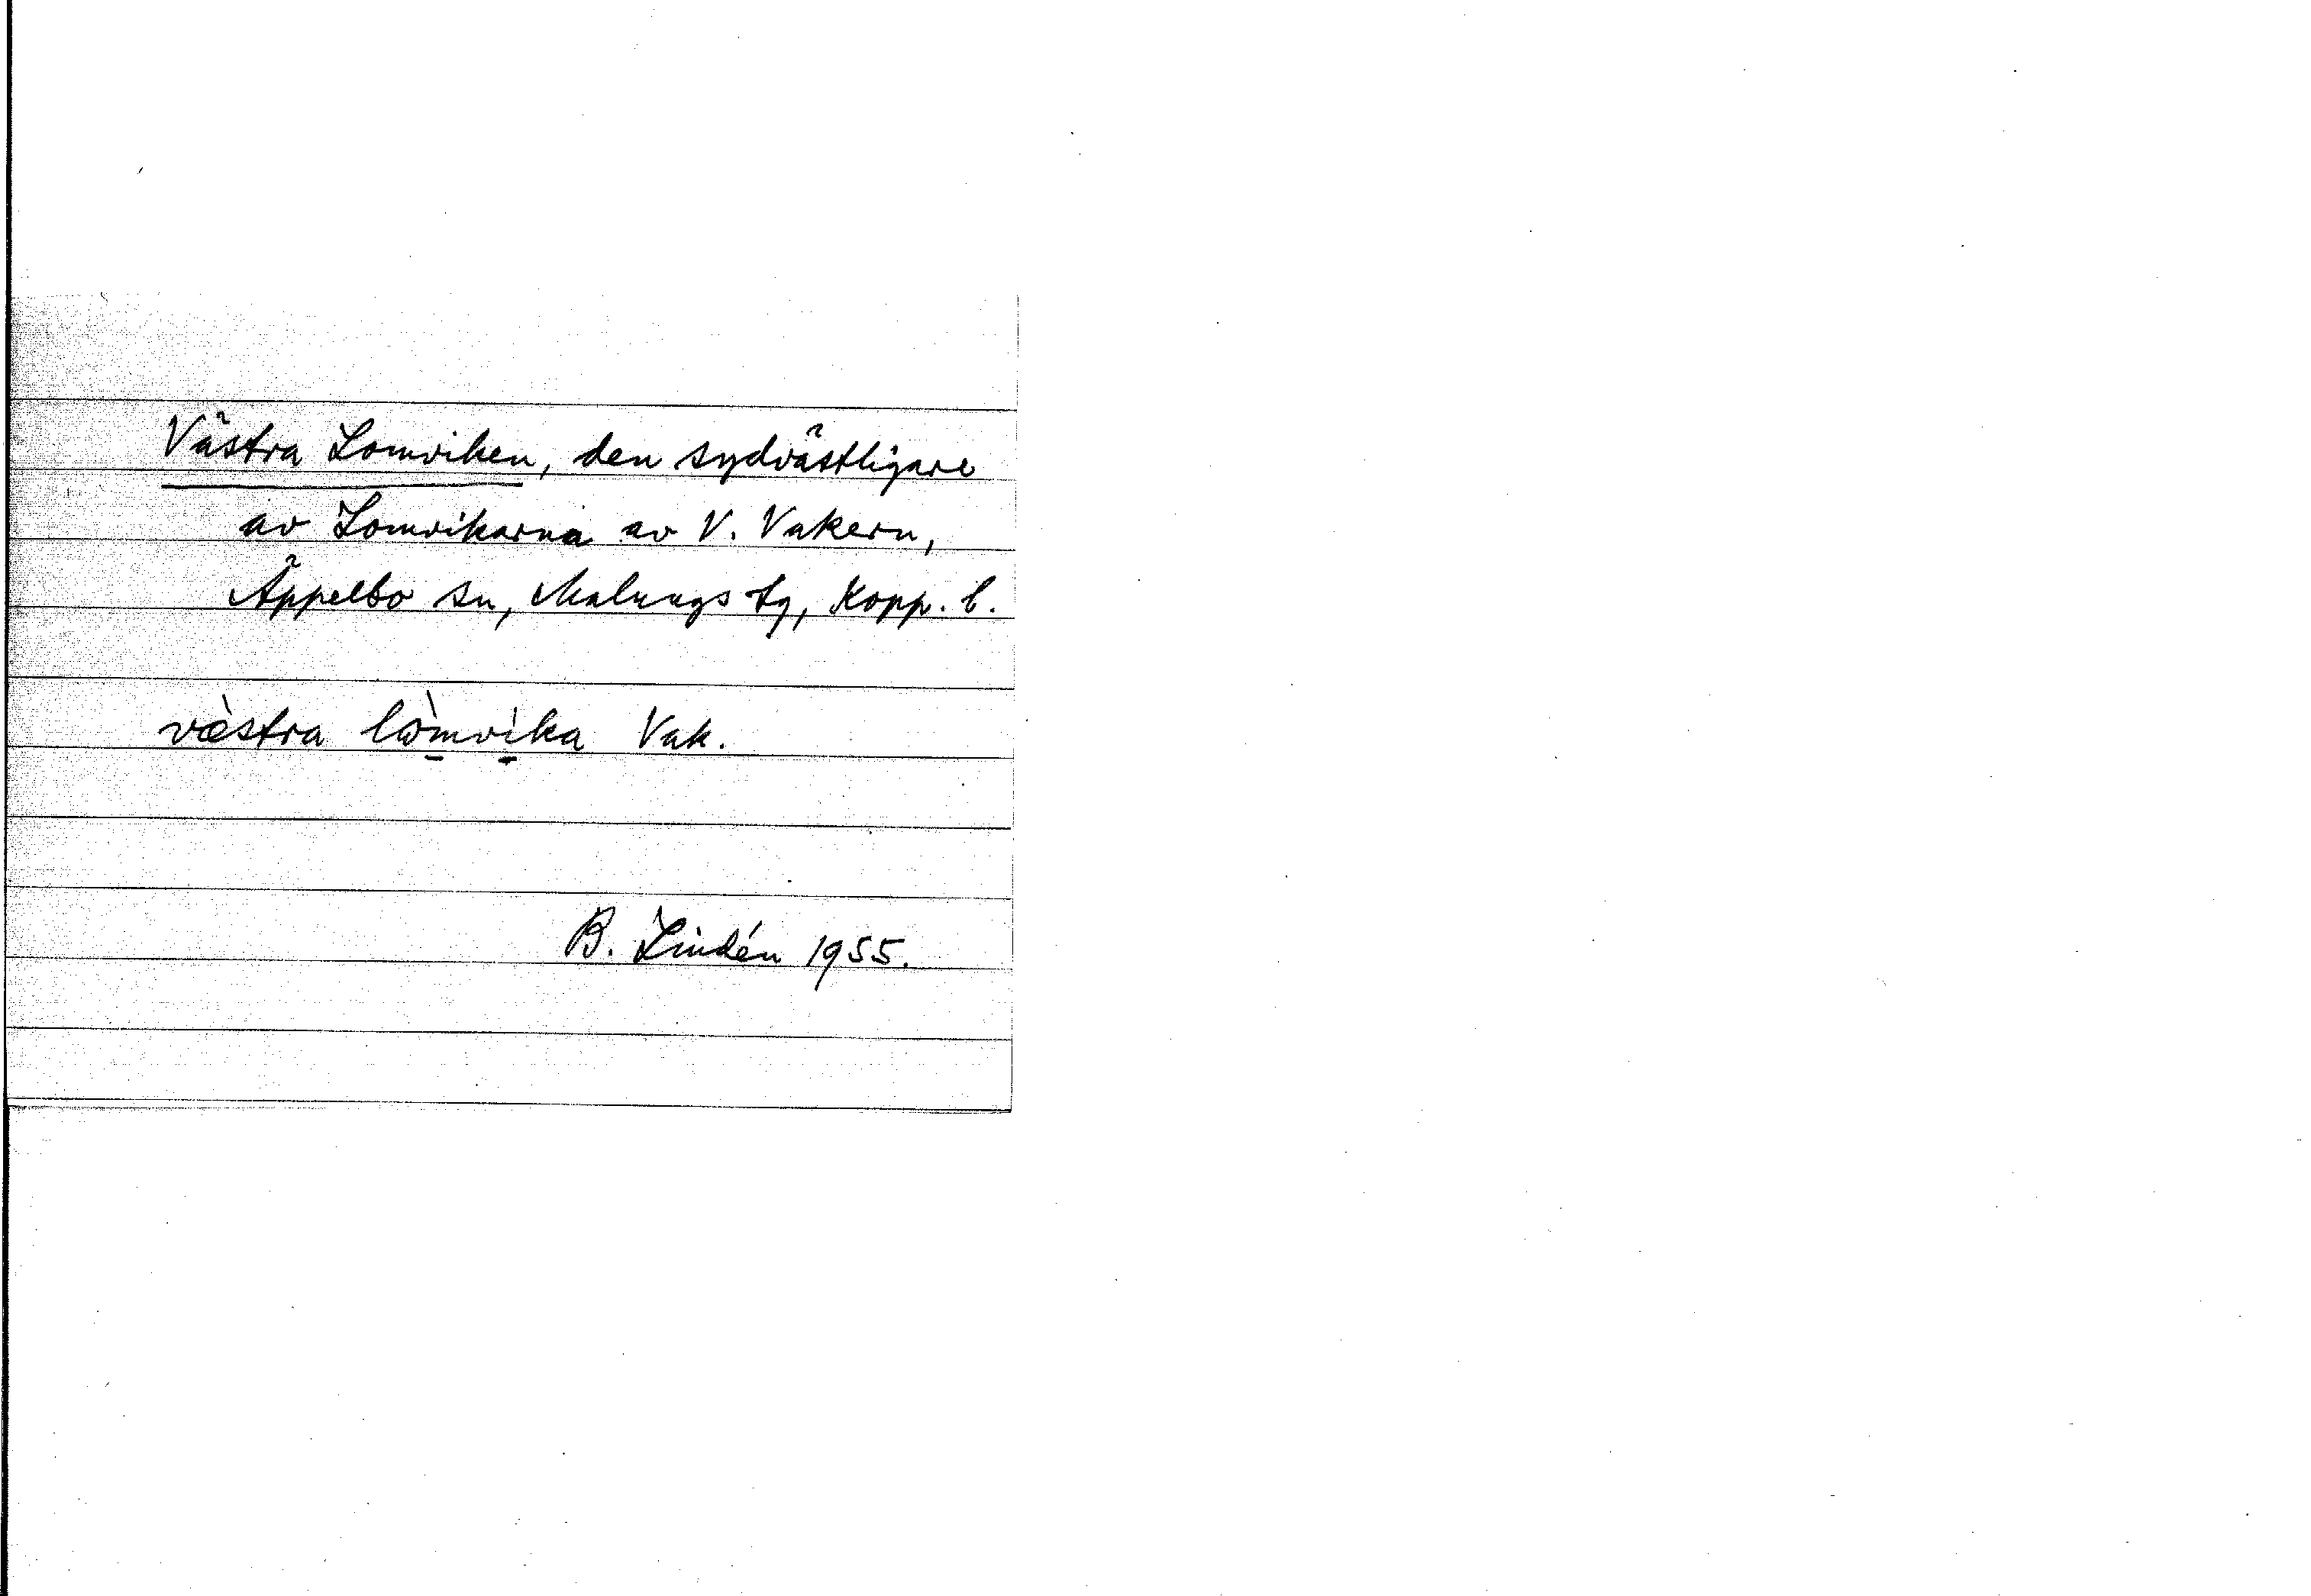 Västra Lomviken, den sydvästligare
av Lomvikarna av V. Vakern,
Äppelbo sn, Malungs tg, Kopp. l.
væ̀stra lòm̱vi̱ka Vak.
B. Lindén 1955.